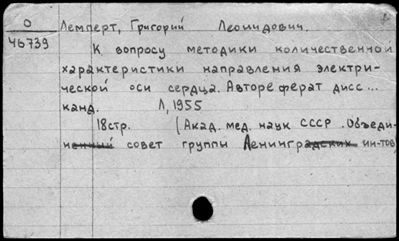 О Лемперт, Григорий Леонидович.
46739
К вопросу методики количественной
характеристики направления электри-
ческой оси сердца. Автореферат дисс...
канд. Л, 1955
18стр. (Акад. мед. наук СССР. Объеди-
ненный совет группы Ленинградских ин-тов)